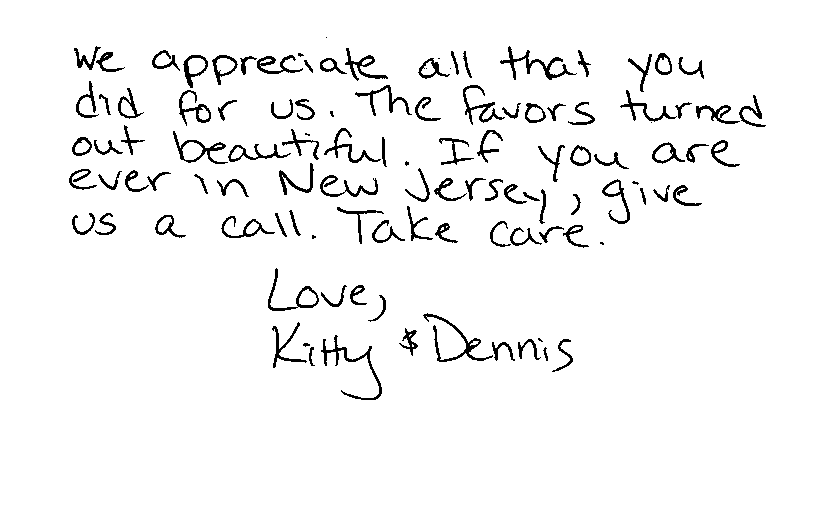 We appreciate all that you
did for us. The favors turned
out beautiful. If you are
ever in New Jersey, give
us a call. Take care.
Love,
Kitty & Dennis